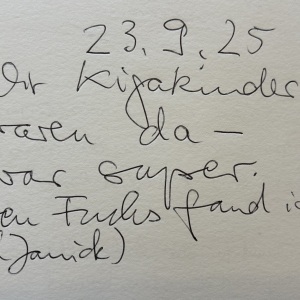 23.9.25
Kigakinder
waren da –
war super.
en Fuchs fand i
Janick)